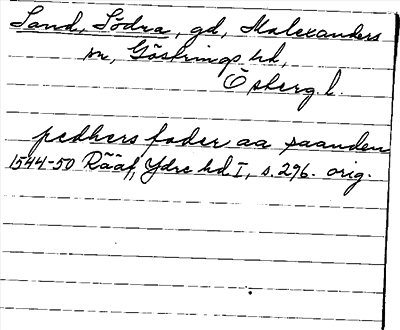 Sand, Södra, gd, Malexanders
sn, Göstrings hd,
Östberg. l.
pedhers fader aa saanden
1544-50 Rääf, Ydre hd I, s. 296. orig.